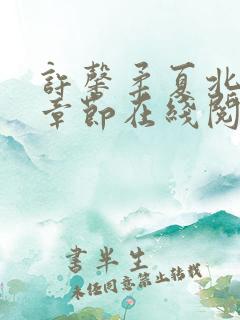 許馨柔夏北
章節在綫閱
書半生
未经同意禁止转载